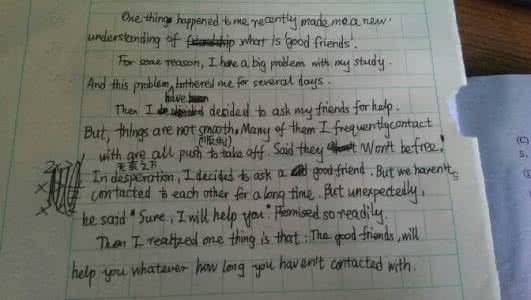 One thing happened to me recently made me a new
understanding of friendship what is 'good friends'.
For some reason, I have a big problem with my study.
And this problem bothered me for several days.
Then I have decided to ask my friends for help.
But, things are not smooth. Many of them I frequently contact
with are all push to take off. Said they Won't be free.
In desperation, I decided to ask a good friend. But we haven't
contacted to each other for a long time. But unexpectedly,
he said "Sure, I will help you". Promised so readily.
Then I realized one thing is that: The good friends, will
help you whatever how long you haven't contacted with.